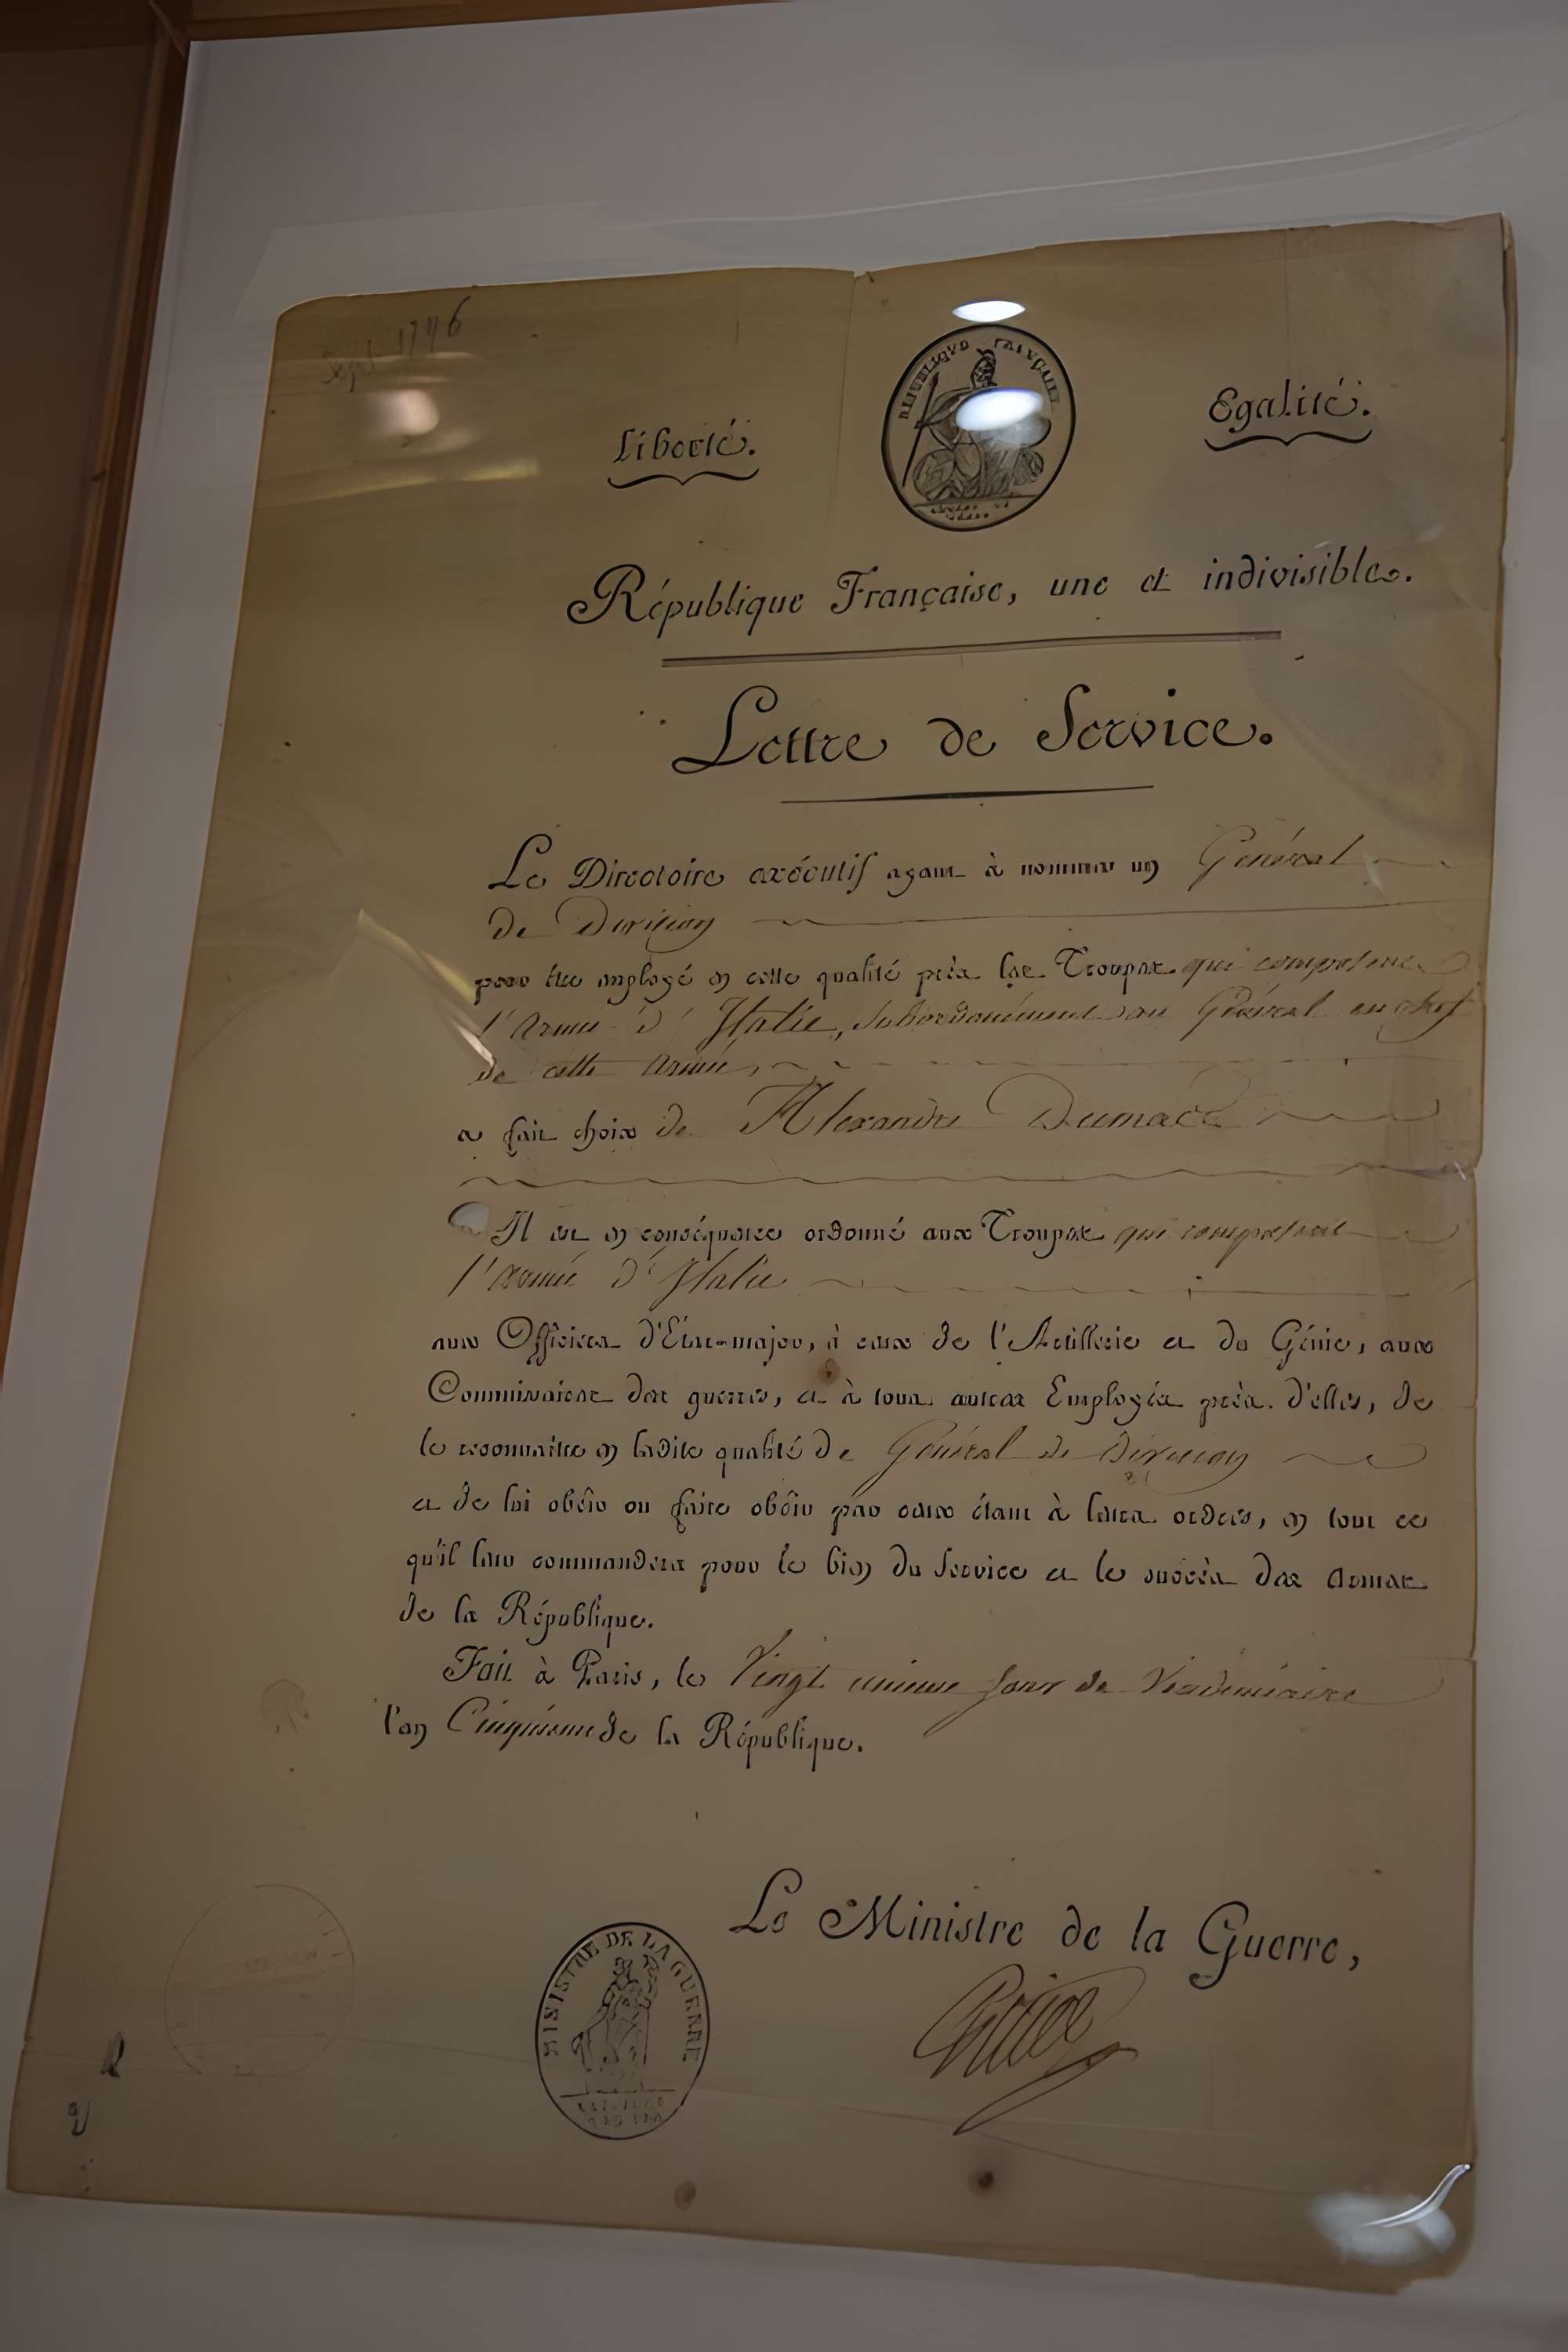 1796
RÉPUBLIQUE FRANÇAISE
Liberté.
Egalité.
République Française, une et indivisible.
Lettre de Service.
Le Directoire exécutif ayant à nommer un Général
de Division
pour être employé en cette qualité près les Troupes qui composent
l'Armée d'Italie, subordonnément au Général en chef
de cette Armée,
a fait choix de Alexandre Dumas
Il est en conséquence ordonné aux Troupes qui composent
l'armée d'Italie
aux Officiers d'État-major, à ceux de l'Artillerie et du Génie, aux
Commissaires des guerres, et à tous autres Employés près d'elles, de
le reconnaître en ladite qualité de Général de Division
et de lui obéir ou faire obéir par ceux étant à leurs ordres, en tout ce
qu'il leur commandera pour le bien du Service et le succès des Armes
de la République.
Fait à Paris, le Vingt unieme jour de Vendémiaire
l'an Cinquième de la République.
Le Ministre de la Guerre,
MINISTRE DE LA GUERRE